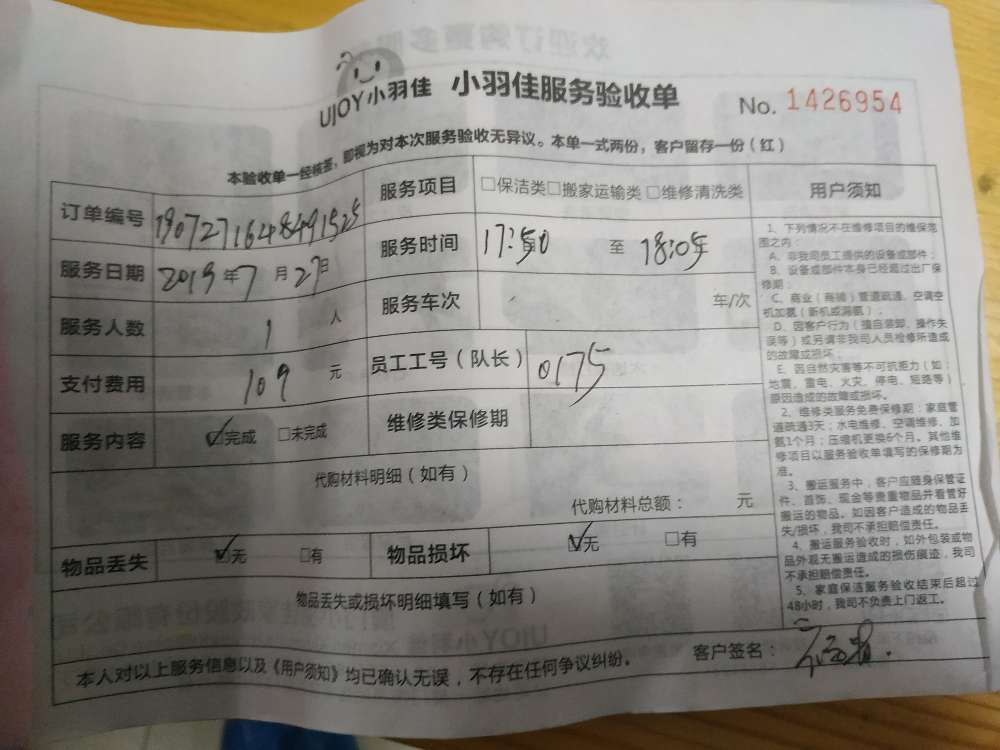 UJOY小羽佳 小羽佳服务验收单 No. 1426954
本验收单一经核签，即视为对本次服务验收无异议。本单一式两份，客户留存一份（红）
订单编号 1907271648491525 服务项目 □保洁类□搬家运输类 □维修清洗类
服务日期 2019年7月27日 服务时间 17:50 至 18:05
服务人数 1 人 服务车次 车/次
支付费用 109 元 员工工号（队长） 0175
服务内容 ☑完成 □未完成 维修类保修期
代购材料明细（如有）
代购材料总额： 元
物品丢失 ☑无 □有 物品损坏 ☑无 □有
物品丢失或损坏明细填写（如有）
本人对以上服务信息以及《用户须知》均已确认无误，不存在任何争议纠纷。 客户签名：
用户须知
1、下列情况不在维修项目的维保范
围之内：
A、非我司员工提供的设备或部件；
B、设备或部件本身已经超过出厂保
修期；
C、商业（商铺）管道疏通、空调空
机加氨（新机或漏氨）；
D、因客户行为（擅自装卸、操作失
误等）或另请非我司人员检修所造成
的故障或损坏；
E、因自然灾害等不可抗拒力（如：
地震、雷电、火灾、停电、短路等）
原因造成的故障或损坏。
2、维修类服务免费保修期：家庭管
道疏通3天；水电维修、空调维修、加
氨1个月；压缩机更换6个月。其他维
修项目以服务验收单填写的保修期为
准。
3、搬运服务中，客户应随身保管证
件、首饰、现金等贵重物品并看管好
搬运的物品。如因客户造成的物品丢
失/损坏，我司不承担赔偿责任。
4、搬运服务验收时，如外包装或物
品外观无搬运造成的损伤痕迹，我司
不承担赔偿责任。
5、家庭保洁服务验收结束后超过
48小时，我司不负责上门返工。